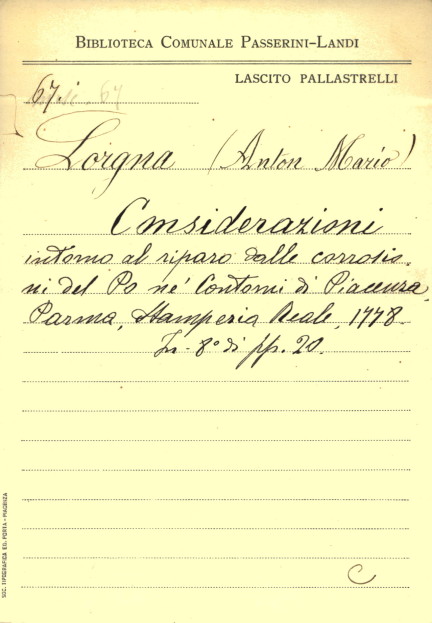 BIBLIOTECA COMUNALE PASSERINI-LANDI
LASCITO PALLASTRELLI
67.
Lorgna (Anton Mario)
Considerazioni
intorno al riparo dalle corrosio-
ni del Po ne' Contorni di Piacenza,
Parma, Stamperia Reale, 1778.
In-8° di pp. 20.
C
SOC. TIPOGRAFICA ED. PORTA - PIACENZA